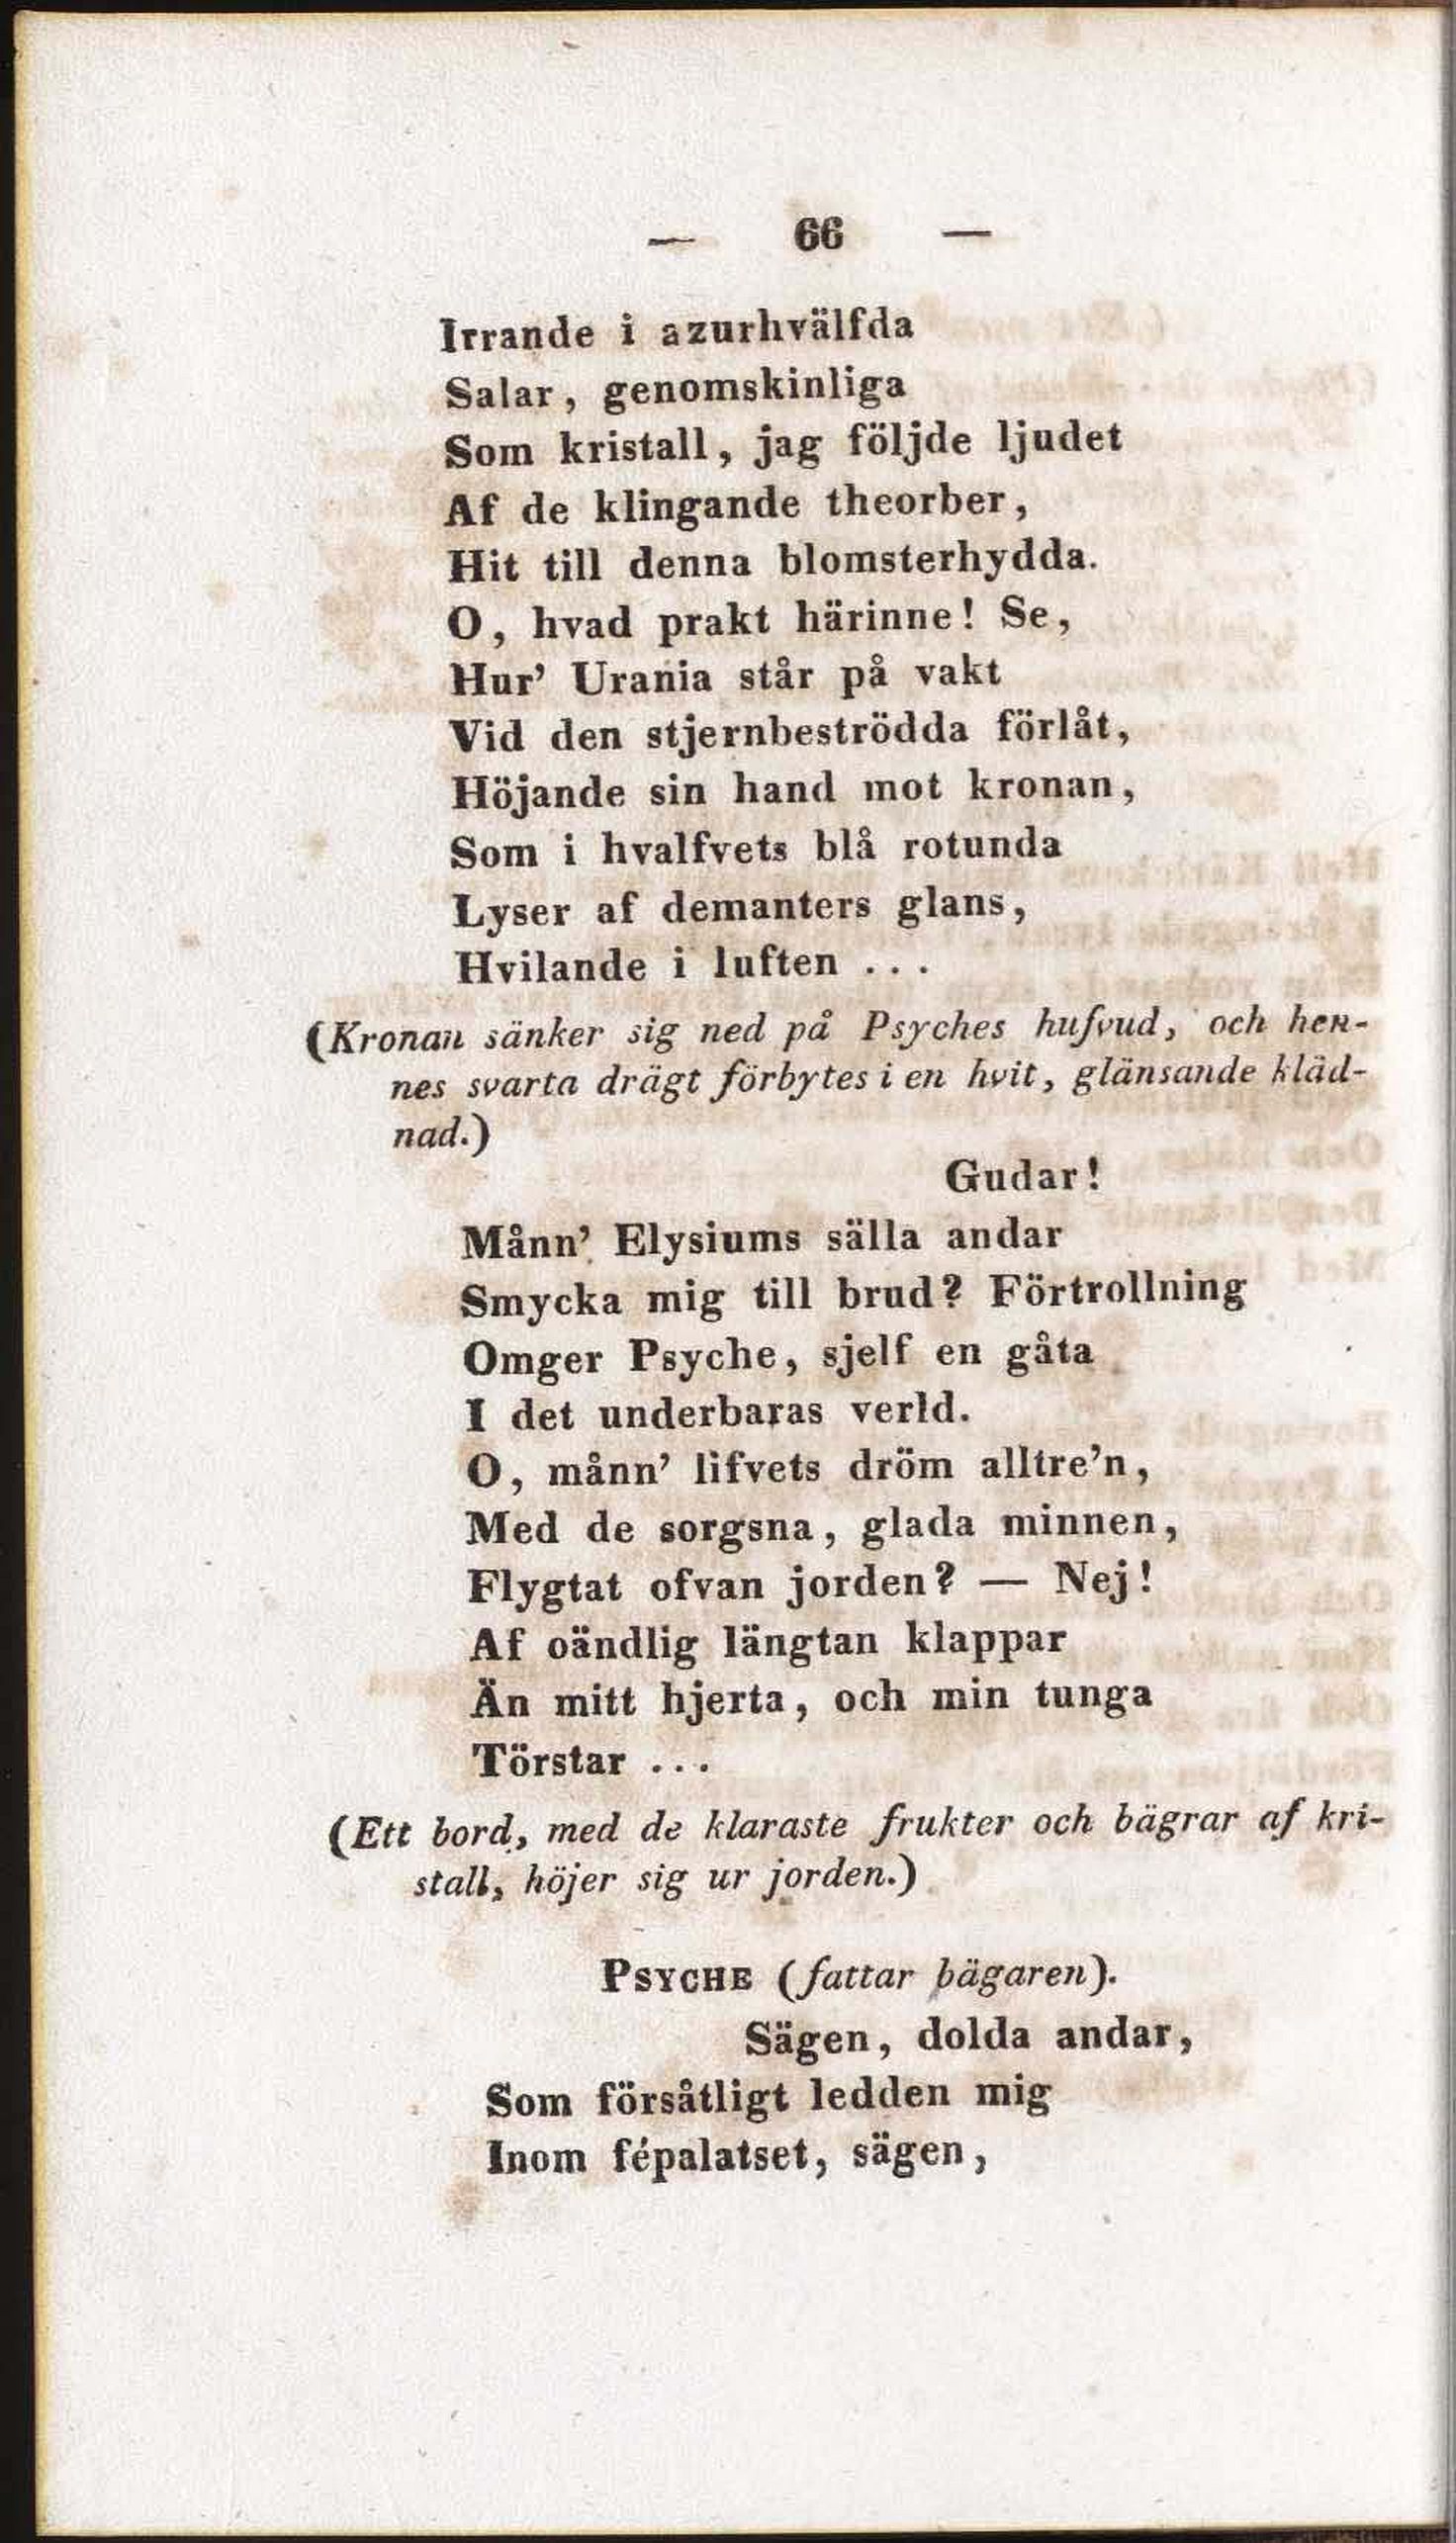 — 66 —
Irrande i azurhvälfda
Salar, genomskinliga
Som kristall, jag följde ljudet
Af de klingande theorber,
Hit till denna blomsterhydda.
O, hvad prakt härinne! Se,
Hur' Urania står på vakt
Vid den stjernbeströdda förlåt,
Höjande sin hand mot kronan,
Som i hvalfvets blå rotunda
Lyser af demanters glans,
Hvilande i luften ...
(Kronan sänker sig ned på Psyches hufvud, och hen-
nes svarta drägt förbytes i en hvit, glänsande kläd-
nad.)
Gudar!
Månn' Elysiums sälla andar
Smycka mig till brud? Förtrollning
Omger Psyche, sjelf en gåta
I det underbaras verld.
O, månn' lifvets dröm alltre'n,
Med de sorgsna, glada minnen,
Flygtat ofvan jorden? — Nej!
Af oändlig längtan klappar
Än mitt hjerta, och min tunga
Törstar ...
(Ett bord, med de klaraste frukter och bägrar af kri-
stall, höjer sig ur jorden.)
PSYCHE (fattar bägaren).
Sägen, dolda andar,
Som försåtligt ledden mig
Inom fépalatset, sägen,